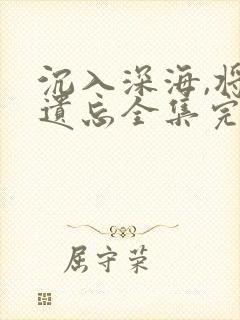 沉入深海,将
遗忘全集完
屈守荣